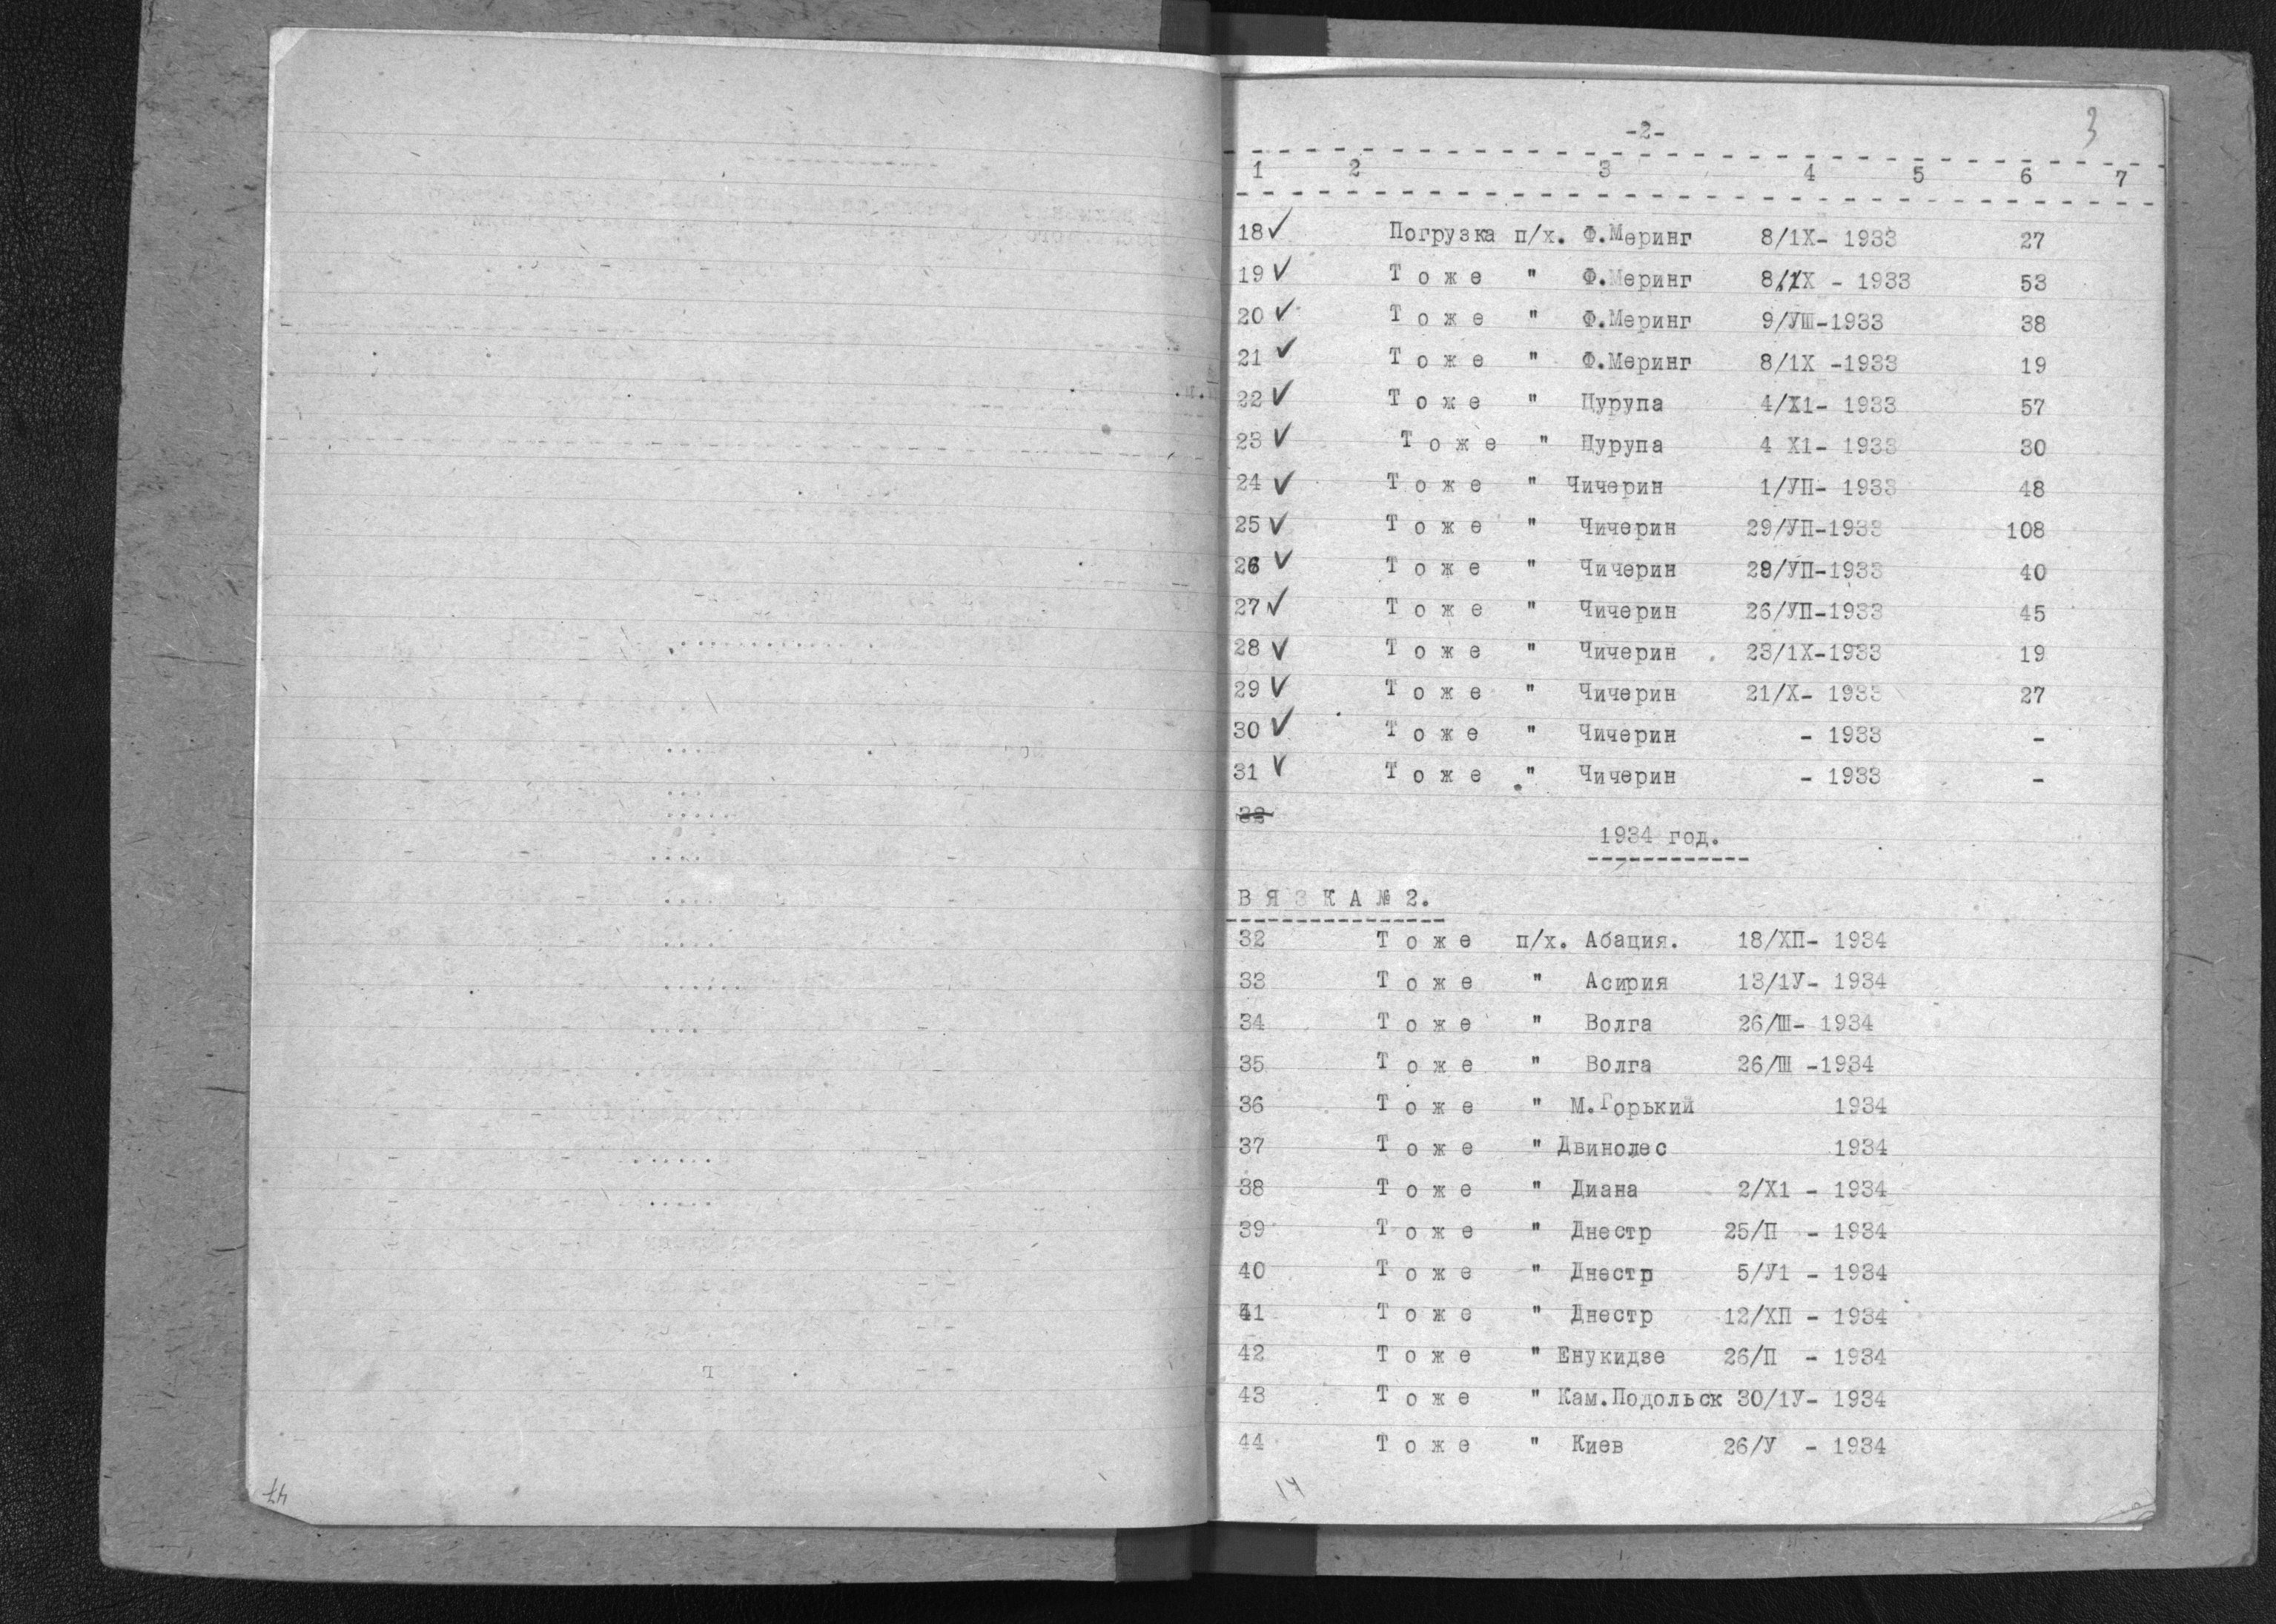 -2-
3
1 2 3 4 5 6 7
18 ✓ Погрузка п/х. Ф.Меринг 8/1Х- 1933 27
19 ✓ Т о ж е " Ф.Меринг 8/1Х - 1933 53
20 ✓ Т о ж е " Ф.Меринг 9/УШ-1933 38
21 ✓ Т о ж е " Ф.Меринг 8/1Х -1933 19
22 ✓ Т о ж е " Цурупа 4/Х1- 1933 57
23 ✓ Т о ж е " Цурупа 4 Х1- 1933 30
24 ✓ Т о ж е " Чичерин 1/УП- 1933 48
25 ✓ Т о ж е " Чичерин 29/УП-1933 108
26 ✓ Т о ж е " Чичерин 29/УП-1933 40
27 ✓ Т о ж е " Чичерин 26/УП-1933 45
28 ✓ Т о ж е " Чичерин 23/1Х-1933 19
29 ✓ Т о ж е " Чичерин 21/Х- 1933 27
30 ✓ Т о ж е " Чичерин - 1933 -
31 ✓ Т о ж е " Чичерин - 1933 -
32
1934 год.
В Я З К А № 2.
32 Т о ж е п/х. Абация. 18/ХП- 1934
33 Т о ж е " Асирия 13/1У- 1934
34 Т о ж е " Волга 26/Ш- 1934
35 Т о ж е " Волга 26/Ш -1934
36 Т о ж е " М.Горький 1934
37 Т о ж е " Двинолес 1934
38 Т о ж е " Диана 2/Х1 - 1934
39 Т о ж е " Днестр 25/П - 1934
40 Т о ж е " Днестр 5/У1 - 1934
41 Т о ж е " Днестр 12/ХП - 1934
42 Т о ж е " Енукидзе 26/П - 1934
43 Т о ж е " Кам.Подольск 30/1У- 1934
44 Т о ж е " Киев 26/У - 1934
14